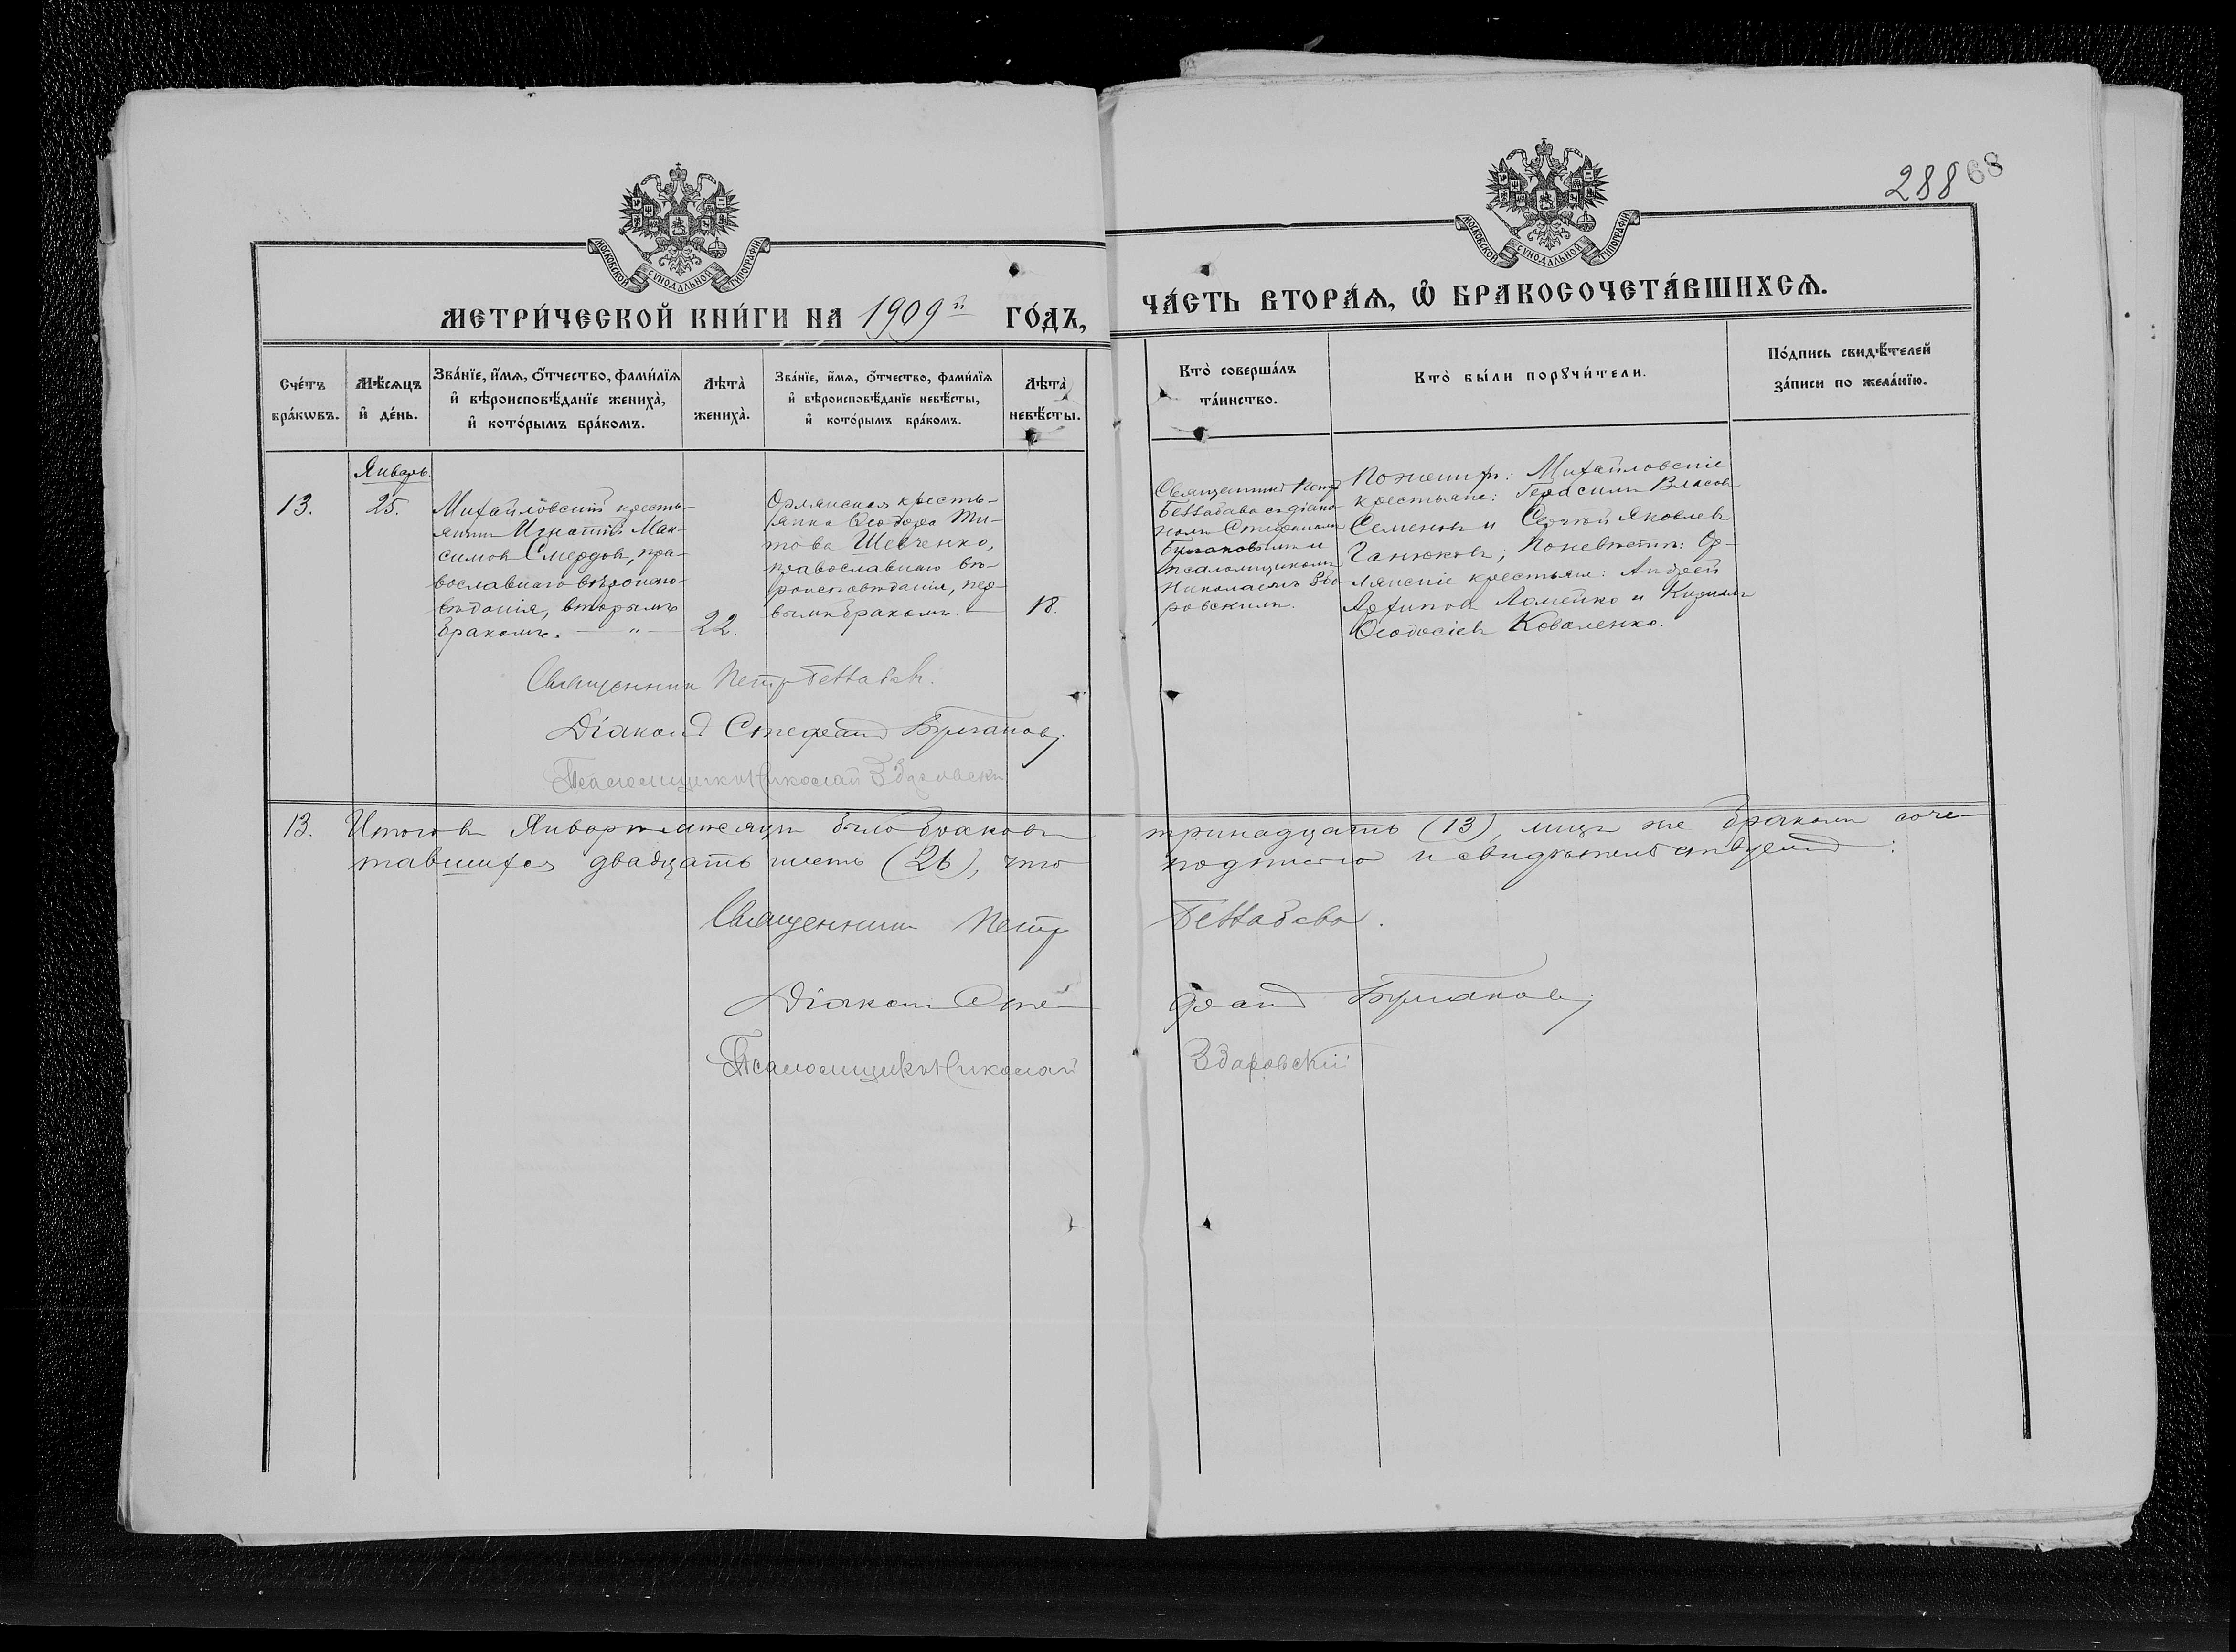 288 68
МОСКОВСКОЙ СѴНОДАЛЬНОЙ ТИПОГРАФІИ
МОСКОВСКОЙ СѴНОДАЛЬНОЙ ТИПОГРАФІИ
МЕТРИ́ЧЕСКОЙ КНИ́ГИ НА 1909й ГО́ДЪ,
ЧА́СТЬ ВТОРА́Ѧ, Ѡ҆ БРАКОСОЧЕТА́ВШИХСѦ.
Сче́тъ
бра́кѡвъ.
Мѣ́сѧцъ
и҆ де́нь.
Зва́нїе, и҆́мѧ, ѻ҆́тчество, фами́лїѧ
и҆ вѣроисповѣ́данїе жениха̀,
и҆ кото́рымъ бра́комъ.
Лѣта̀
жениха̀.
Зва́нїе, и҆́мѧ, ѻ҆́тчество, фами́лїѧ
и҆ вѣроисповѣ́данїе невѣ́сты,
и҆ кото́рымъ бра́комъ.
Лѣта̀
невѣ́сты.
Кто̀ соверша́лъ
та́инство.
Кто̀ бы́ли порꙋчи́тели.
По́дпись свидѣ́телей
за́писи по жела́нїю.
13.
Январь.
25.
Михайловскій кресть-
янинъ Игнатій Мак-
симовъ Смердовъ, пра-
вославнаго вѣроиспо-
вѣданія, вторымъ
бракомъ. — „ —
22.
Орлянская кресть-
янка Ѳеодора Ти-
това Шевченко,
православнаго вѣ-
роисповѣданія, пер-
вымъ бракомъ. —
18.
Священникъ Петръ
съ діако-
номъ Стефаномъ
и
псаломщикомъ
Николаемъ Здо-
ровскимъ.
По женихѣ: Михайловскіе
крестьяне: Герасимъ Власовъ
Семеновъ и Сергѣй Яковлевъ
Ганюковъ; По невѣстѣ: Ор-
лянскіе крестьяне: Андрей
Архиповъ Ломейко и Кириллъ
Ѳеодосіевъ Коваленко.
Священникъ Петръ
Діаконъ Стефанъ
Псаломщикъ Николай
13. Итого въ Январѣ мѣсяцѣ было браковъ тринадцать (13), лицъ же бракомъ соче-
тавшихся двадцать шесть (26), что подписью и свидѣтельствуемъ:
Священникъ Петръ
Діаконъ Стефанъ
Псаломщикъ Николай Здоровскій